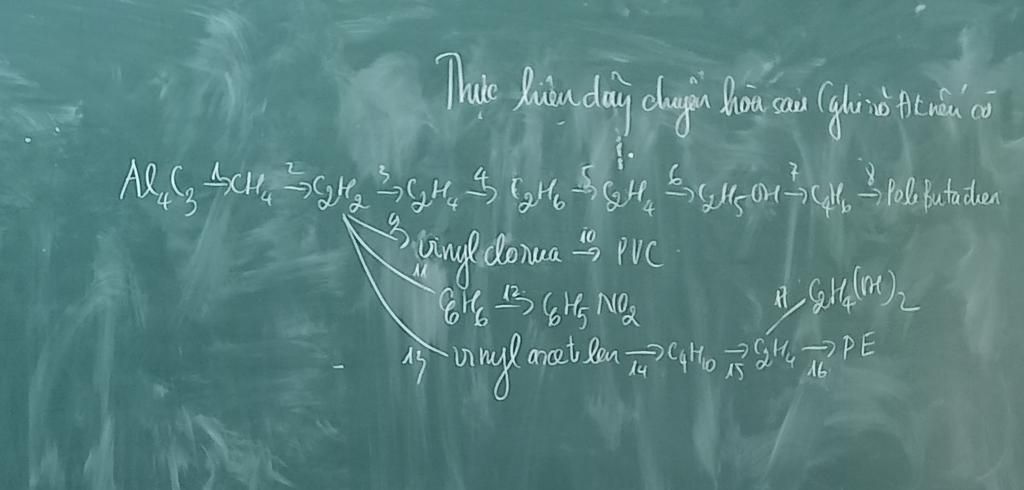 Thực hiện dãy chuyển hóa sau (ghi rõ đk nếu có
Al4C3 1→ CH4 2→ C2H2 3→ C2H4 4→ C2H6 5→ C2H4 6→ C2H5OH 7→ C4H6 8→ Polibutadien
9 vinyl clorua 10→ PVC
11 C6H6 12→ C6H5NO2
17 C2H4(OH)2
13 vinyl axetilen →14 C4H10 →15 C2H4 →16 PE